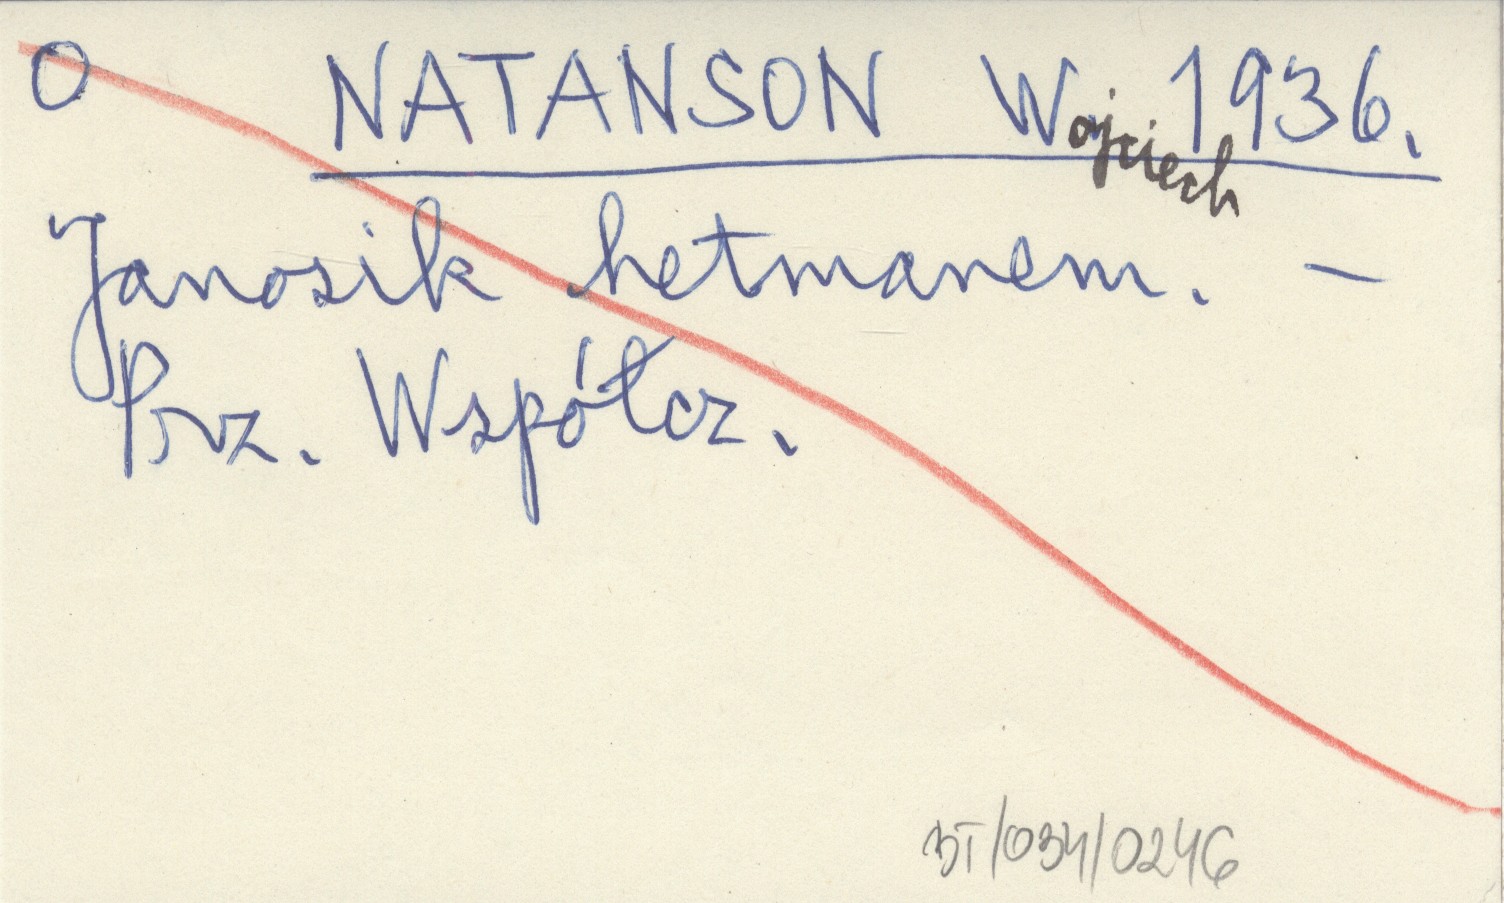 O NATANSON Wojciech 1936.
Janosik hetmanem. –
Prz. Współcz.
BT/034/0246